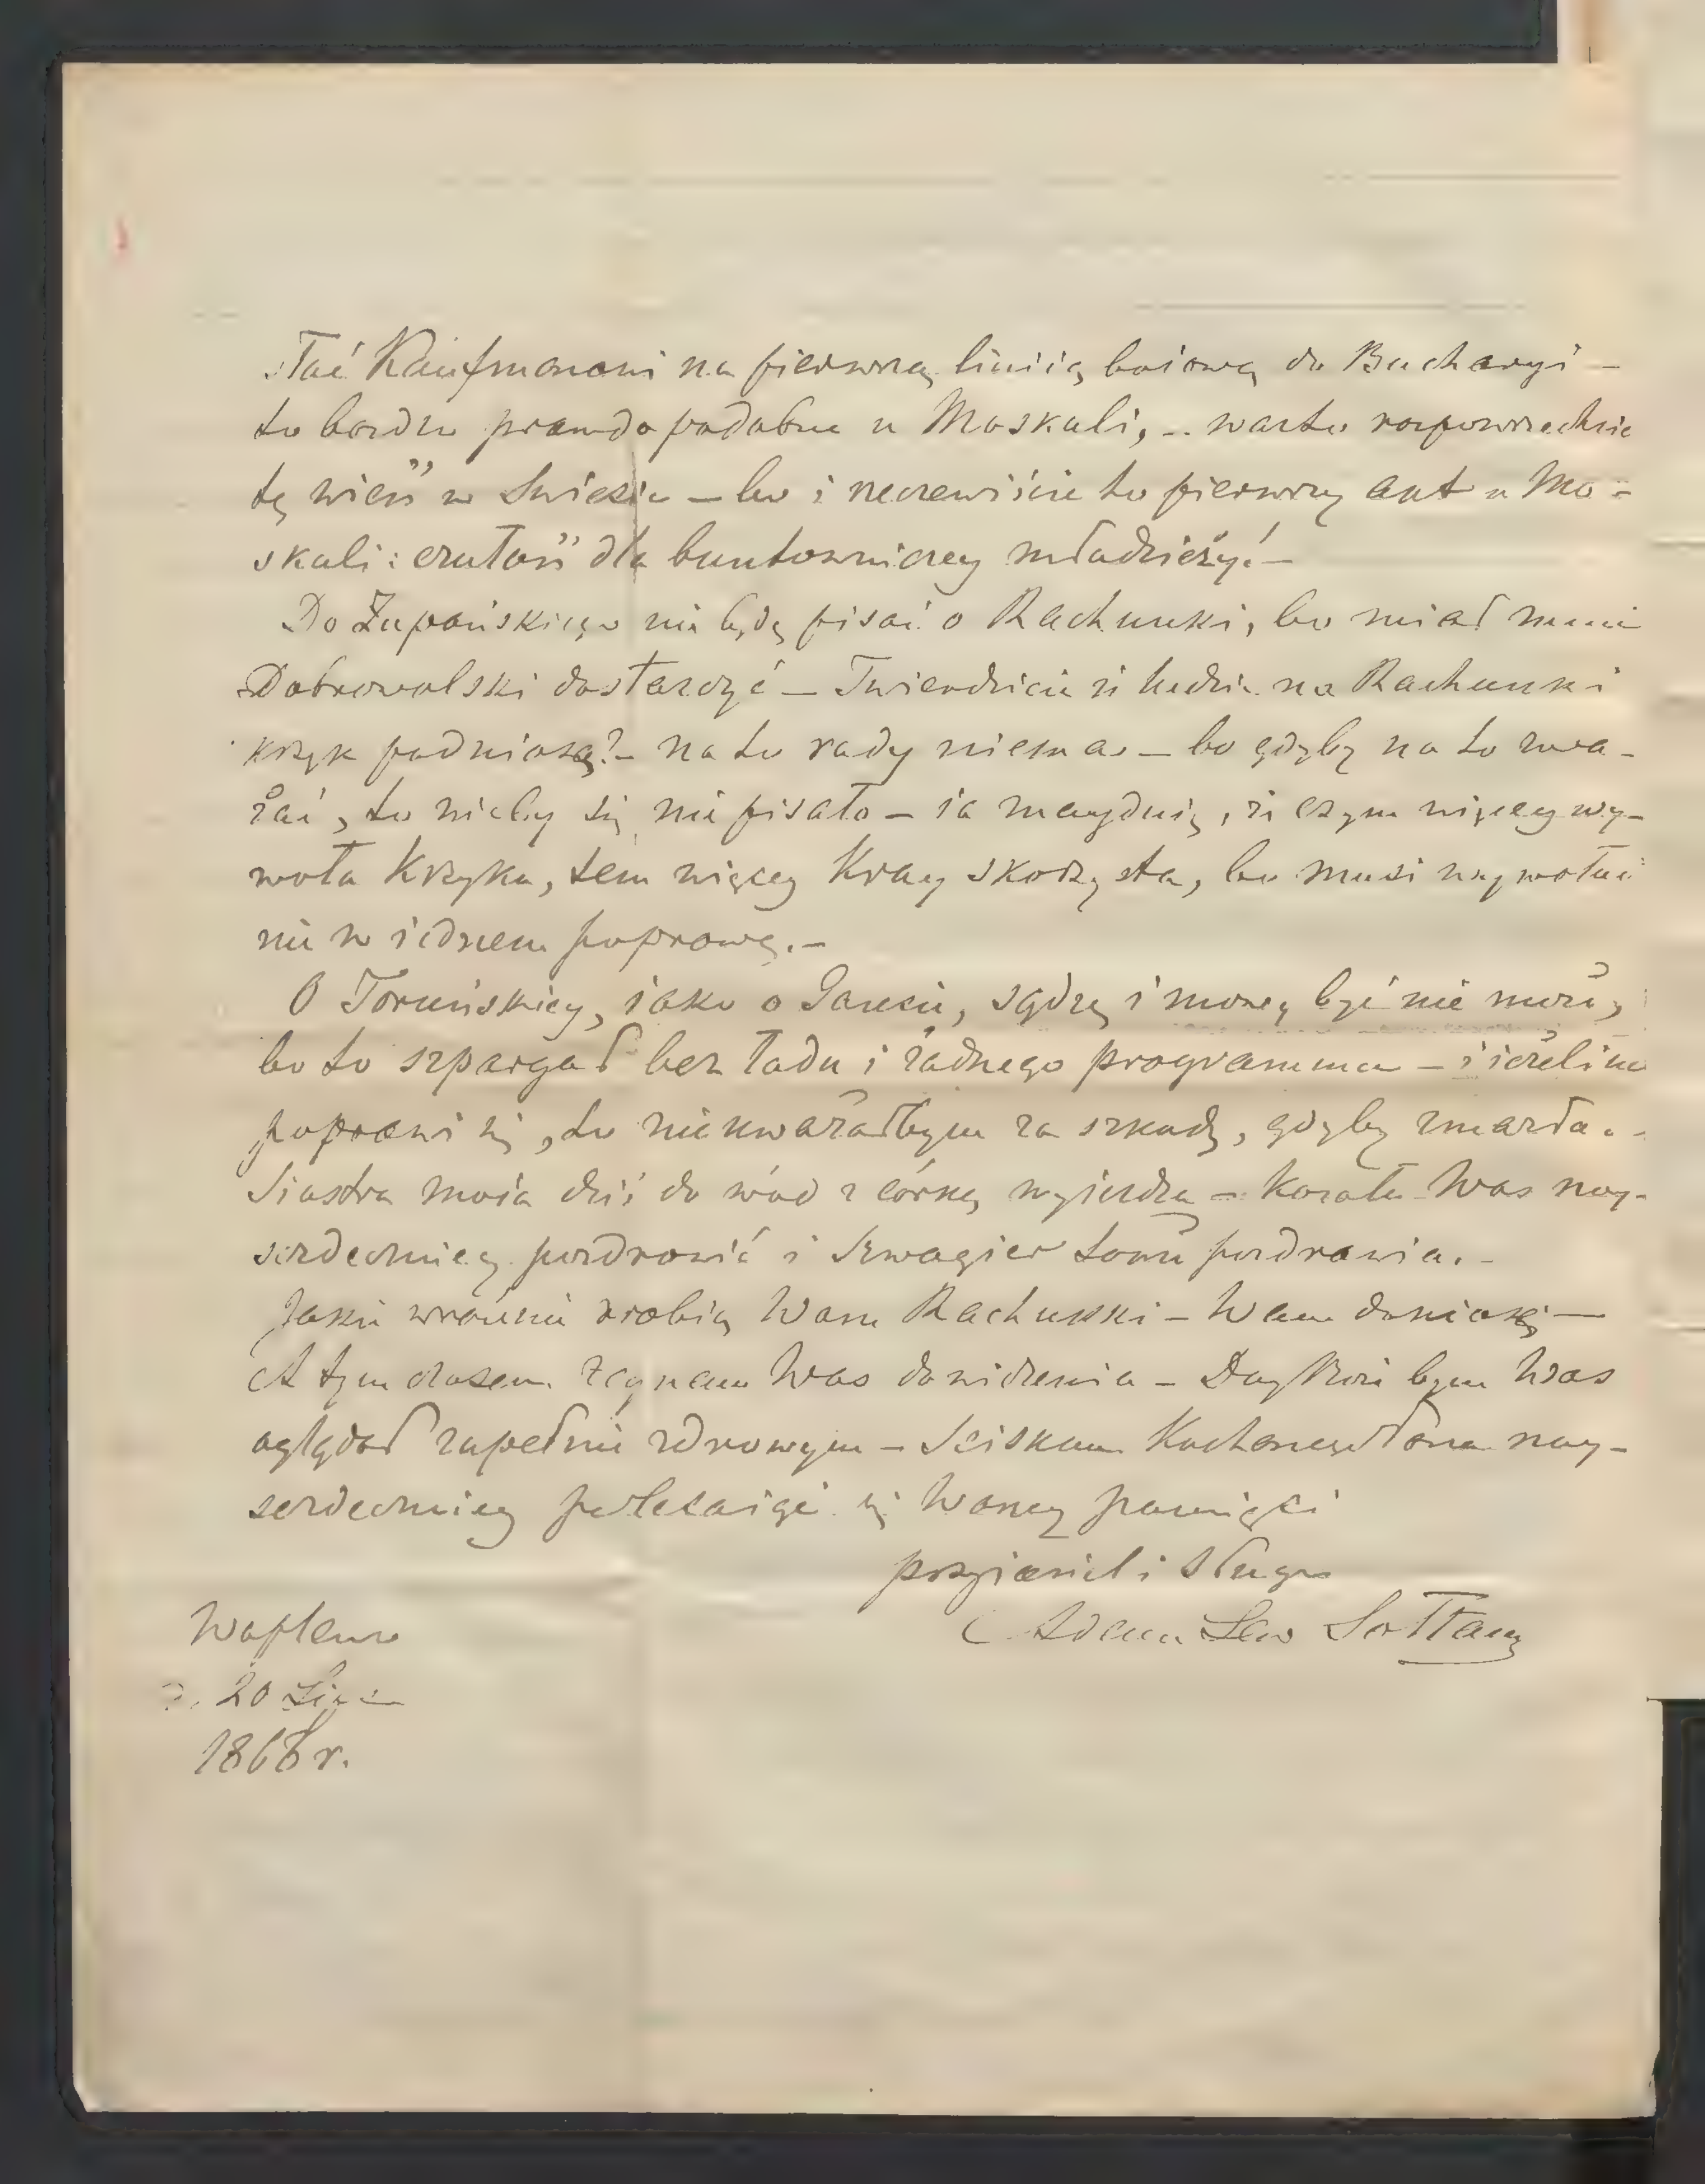 słać Kaufmanowi na pierwszą liniię boiową do Bucharyi —
to bardzo prawdopodobne u Moskali, — warto rozpowszechnić
tę wieść w Swiecie — bo i rzeczewiście to pierwszy akt u Mo-
skali: czułość dla buntowniczey młodzieży! —
Do Żupańskiego nie będę pisać o Rachunki, bo miał mnie
Dobrowolski dostarczyć — Twierdzicie że ludzie na Rachunki
krzyk podniosą? — na to rady niema — bo gdyby na to zwa-
żać, to nicby się nie pisało — ia znayduię, że czym więcey wy-
woła Krzyku, tem więcey Kray skorzysta, bo musi wywołać
nie w iednem poprawę. —
O Toruńskiey, iako o Gazecie, sądzę i mowy być nie może,
bo to szpargał bez ładu i żadnego programma — i ieżeli nie
poprawi się, to nie uważałbym za szkodę, gdyby zmarła. —
Siostra moia dziś do wód z córką wyieżdża — kazała Was nay-
serdeczniey pozdrowić i Szwagier toż pozdrawia. —
Jakie wrażenie zrobią Wam Rachunki — Wam doniosę —
A tymczasem żegnam Was do widzenia — Day Boże bym Was
oglądał zupełnie zdrowym — Sciskam Kochanego Pana nay-
serdeczniey polecaiąc się Waszey pamięci
przyiaciel i Sługa
Adam Lew Sołtan
Waplewo
d. 20 Lipca
1868 r.